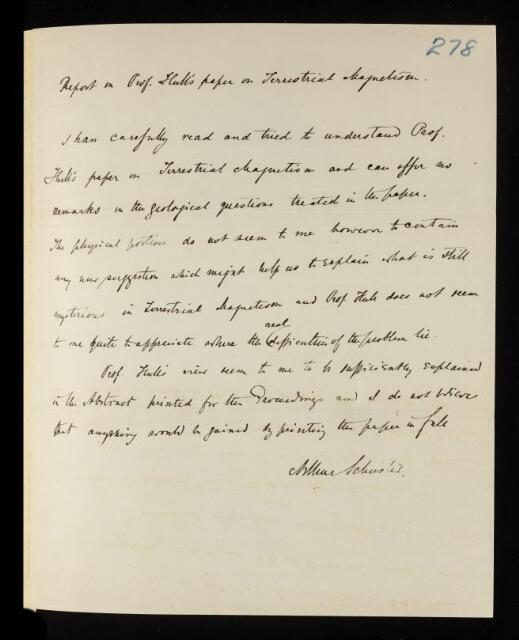 278
Report on Prof. Hull's paper on Terrestrial Magnetism.
I have carefully read and tried to understand Prof.
Hull's paper on Terrestrial Magnetism and can offer no
remarks on the geological questions treated in the paper.
The physical portions do not seem to me however to contain
any new suggestion which might help us to explain what is still
mysterious in Terrestrial Magnetism and Prof Hull does not seem
real
to me quite to appreciate where the difficulties of the problem lie.
Prof. Hull's view seem to me to be sufficiently explained
in the Abstract printed for the Proceedings and I do not believe
that anything would be gained by printing the paper in full
Arthur Schuster.